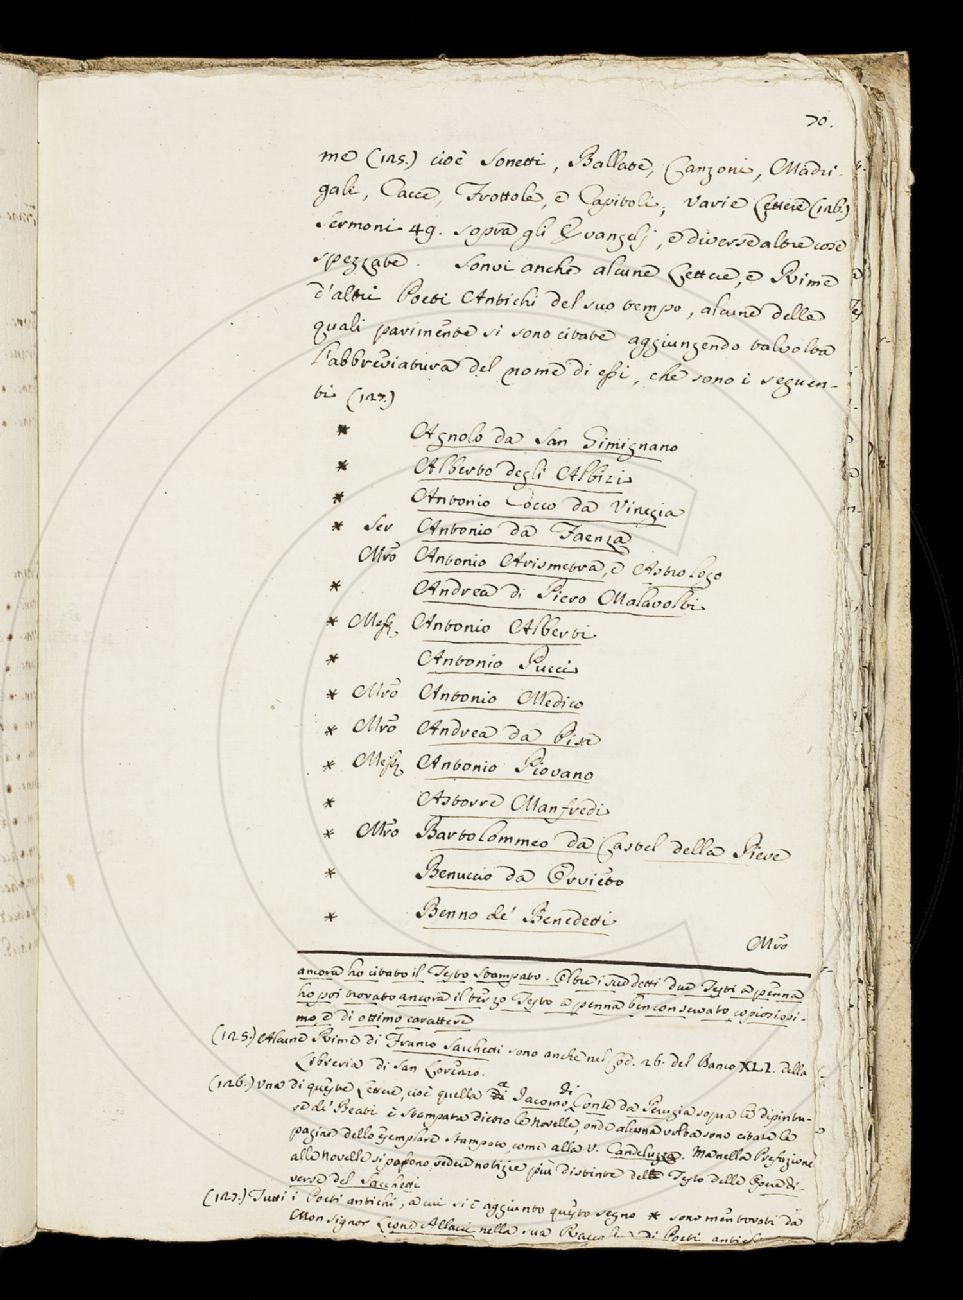 70.
me (125.) cioè Sonetti, Ballate, Canzoni, Madri-
gali, Cacce, Frottole, e Capitoli, varie Lettere (126.)
Sermoni 49. sopra gli Evangelj, e diverse altre cose
spezzate. Sonvi anche alcune Lettere, e Rime
d'altri Poeti Antichi del suo tempo, alcune delle
quali parimente si sono citate aggiungendo talvolta
l'abbreviatura del nome di essi, che sono i seguen-
ti (127.)
* Agnolo da San Gimignano
* Alberto degli Albizi
* Antonio Cocco da Vinegia
* Ser Antonio da Faenza
Mro Antonio Arismetra, e Astrologo
* Andrea di Piero Malavolti
* Messer Antonio Alberti
* Antonio Pucci
* Mro Antonio Medico
* Mro Andrea da Pisa
* Messer Antonio Piovano
* Astorre Manfredi
* Mro Bartolommeo da Castel della Pieve
* Benuccio da Orvieto
* Benno de' Benedetti
Mro
ancora ho citato il Testo Stampato. Oltre i suddetti due Testi a penna
ho poi trovato ancora il terzo Testo a penna ben conservato, copiosissi-
mo, e di ottimo carattere
(125.) Alcune Rime di Franco Sacchetti sono anche nel Cod. 26. del Banco XLI. della
Libreria di San Lorenzo.
(126.) Una di queste Lettere, cioè quella a Jacomo di Conte da Perugia sopra le dipintu-
re de' Beati è Stampata dietro le Novelle, onde alcuna volta sono citate le
pagine dello esemplare Stampato, come alla V. Candeluzza. Ma nella Prefazione
alle Novelle si possono vedere notizie più distinte del Testo delle Opere di-
verse del Sacchetti
(127.) Tutti i Poeti antichi, a cui si è aggiunto questo segno * sono mentovati da
Monsignor Leone Allacci nella sua Raccolta di Poeti antichi